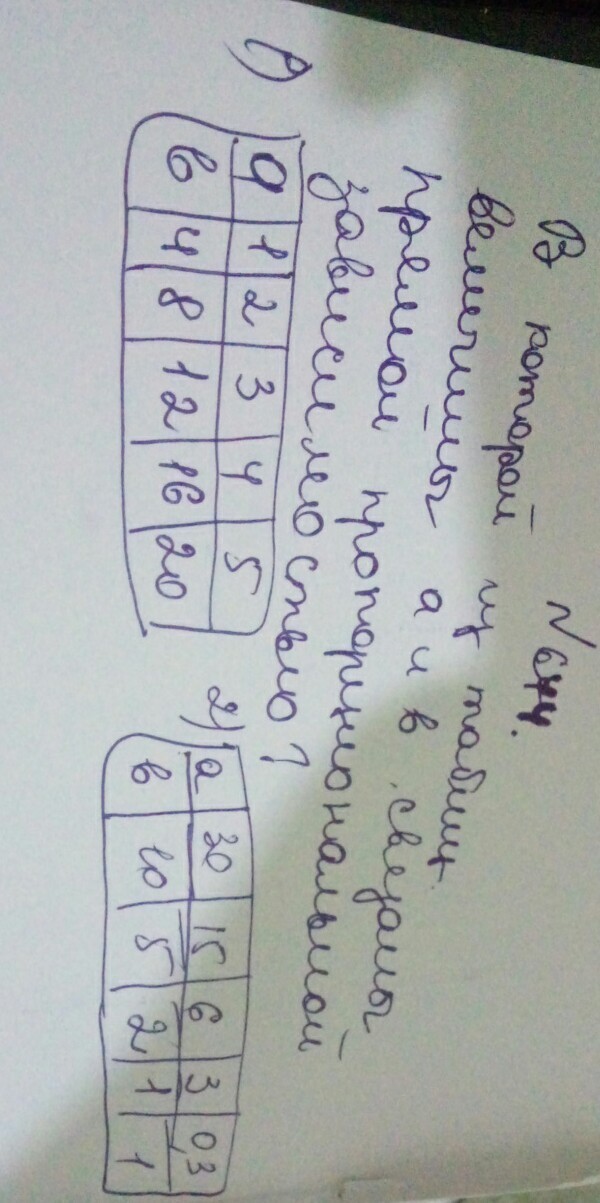 N 644.
В которой из таблиц
величины а и в связаны
прямой пропорциональной
зависимостью?
1)
а 1 2 3 4 5
в 4 8 12 16 20
2)
а 30 15 6 3 0,3
в 10 5 2 1 1